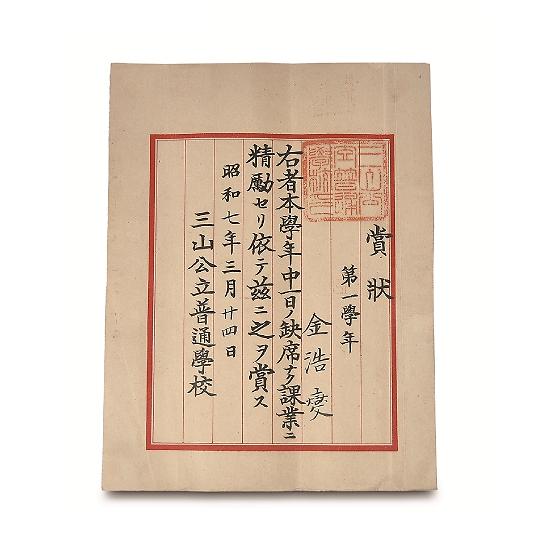 賞狀
第一學年
金浩燮
右者本學年中一日ノ缺席ナク課業ニ
精勵セリ依テ茲ニ之ヲ賞ス
昭和七年三月廿四日
三山公立普通學校